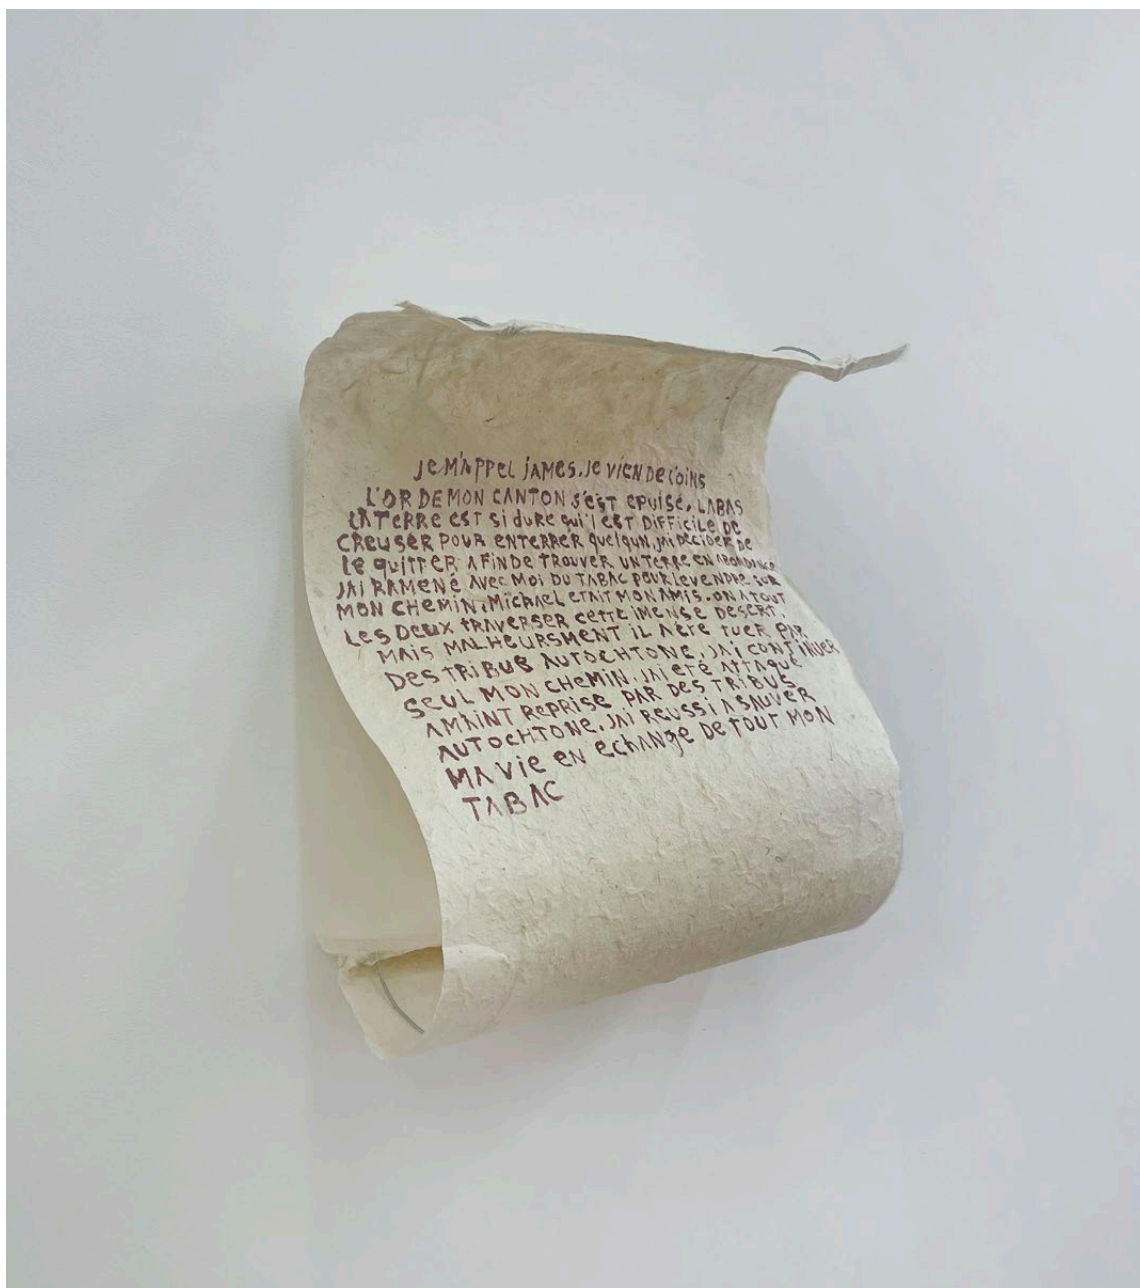 je M'APPEL jAMES. je VIEN De l'OiNS
L'OR DE MON CANTON s'EST EPUISE, LABAS
LA TERRE EST Si dURE qui l EST DiFFiCiLE DE
CREUSER POUR ENTERRER quelqun, jAi DECiDER DE
le quiTTER AFiN DE TROUVER UN TERRE EN ABONDANCE
jAi RAMENé AVEC MOi DU TABAC POUR LE VENDRE SUR
MON CHEMiN. MiCHAEL ETAiT MON AMiS. ON A TOUT
LES DEUX TRAVERSER CETTE iMENSE DESERT.
MAiS MALHEURSMENT iL A ETE TUER PAR
DES TRiBUS AUTOCHTONE, jAi CONTiNUER
SEUL MON CHEMiN. jAi ETé ATTAQUE
AMAiNT REPRiSE PAR DES TRiBUS
AUTOCHTONE. jAi REUSSi A SAUVER
MA ViE EN ECHANgE DE TOUT MON
TABAC